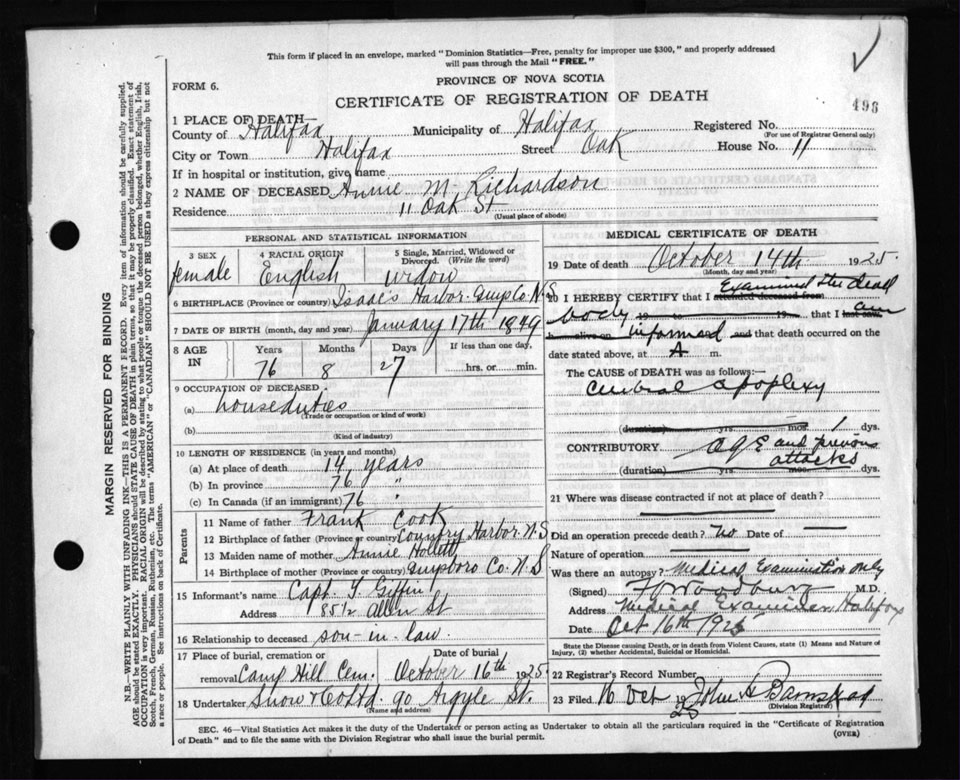 This form if placed in an envelope, marked "Dominion Statistics—Free, penalty for improper use $300," and properly addressed
will pass through the Mail "FREE."
FORM 6.
PROVINCE OF NOVA SCOTIA
CERTIFICATE OF REGISTRATION OF DEATH
496
1 PLACE OF DEATH—
County of Halifax Municipality of Halifax Registered No.
(For use of Registrar General only)
City or Town Halifax Street Oak House No. 11
If in hospital or institution, give name
2 NAME OF DECEASED Annie M. Richardson
Residence 11 Oak St
(Usual place of abode)
PERSONAL AND STATISTICAL INFORMATION
3 SEX 4 RACIAL ORIGIN 5 Single, Married, Widowed or Divorced. (Write the word)
female English widow
6 BIRTHPLACE (Province or country) Isaac's Harbor. Guys Co. N.S
7 DATE OF BIRTH (month, day and year) January 17th 1849
8 AGE IN Years Months Days If less than one day,
76 8 27 hrs. or min.
9 OCCUPATION OF DECEASED
(a) houseduties
(Trade or occupation or kind of work)
(b)
(Kind of industry)
10 LENGTH OF RESIDENCE (in years and months)
(a) At place of death 14 years
(b) In province 76 "
(c) In Canada (if an immigrant) 76 "
Parents
11 Name of father Frank Cook
12 Birthplace of father (Province or country) Country Harbor. N.S
13 Maiden name of mother Annie Hollett
14 Birthplace of mother (Province or country) Guysboro Co. N.S
15 Informant's name Capt. Y. Giffin
Address 85 1/2 Allen St
16 Relationship to deceased son-in-law.
17 Place of burial, cremation or Date of burial
removal Camp Hill Cem. October 16th 1925
18 Undertaker Snow & Co Ltd. 90 Argyle St.
(Name and address)
MEDICAL CERTIFICATE OF DEATH
19 Date of death October 14th 1925
(Month, day and year)
20 I HEREBY CERTIFY that I attended deceased from Examined the dead
body 19 to 19 that I last saw am
h alive on informed and that death occurred on the
date stated above, at A m.
The CAUSE of DEATH was as follows:—
Cerebral apoplexy
(duration) yrs. mos. 1 dys.
CONTRIBUTORY Age and previous
attacks
(duration) yrs. mos. dys.
21 Where was disease contracted if not at place of death?
Did an operation precede death? no Date of
Nature of operation
Was there an autopsy? Medical Examination only
(Signed) M.D.
Address Medical Examiner Halifax
Date Oct 16th 1925
State the Disease causing Death, or in death from Violent Causes, state (1) Means and Nature of
Injury, (2) whether Accidental, Suicidal or Homicidal.
22 Registrar's Record Number
23 Filed 16 Oct 1925 John A Barnstead
(Division Registrar)
SEC. 46—Vital Statistics Act makes it the duty of the Undertaker or person acting as Undertaker to obtain all the particulars required in the "Certificate of Registration
of Death" and to file the same with the Division Registrar who shall issue the burial permit.
(OVER)
MARGIN RESERVED FOR BINDING
N.B.—WRITE PLAINLY WITH UNFADING INK—THIS IS A PERMANENT RECORD. Every item of information should be carefully supplied.
AGE should be stated EXACTLY. PHYSICIANS should STATE CAUSE OF DEATH in plain terms, so that it may be properly classified. Exact statement of
OCCUPATION is very important. RACIAL ORIGIN will be described by stating to what people or tongue the deceased person belonged, whether English, Irish,
Scotch, French, German, Russian, Ruthenian, etc. The terms "AMERICAN" or "CANADIAN" SHOULD NOT BE USED as they express citizenship but not
a race or people. See instructions on back of Certificate.